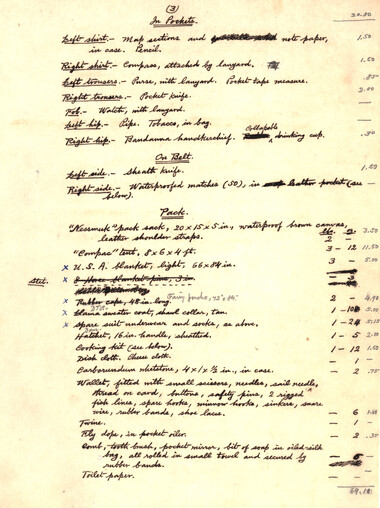 (3)
In Pockets.
30.80
Left shirt.- Map sections and note paper, 1.50
in case. Pencil.
Right shirt.- Compass, attached by lanyard. 1.50
Left trousers.- Purse, with lanyard. Pocket tape measure. .85
Right trousers.- Pocket knife. 2.00
Fob.- Watch, with lanyard.
Left hip.- Pipe. Tobacco, in bag.
Collapsible
Right hip.- Bandanna handkerchief. drinking cup. .30
On Belt.
Left side.- Sheath knife. 1.50
Right side.- Waterproofed matches (50), in leather pocket (see
below).
Pack.
lbs. oz.
"Nessmuk" pack sack, 20 x 15 x 5 in, waterproof brown canvas, 2 - 3.50
leather shoulder straps.
"Compac" tent, 8 x 6 x 4 ft. 3 - 12 11.50
x U.S.A. blanket, light, 66 x 84 in. 3 - 5.00
Stet. x 3
x Rubber cape, 48 in. long. 2 -
x Llama sweater coat, shawl collar, tan. 1 -
x Spare suit underwear and socks, as above. 1 -
Hatchet, 16 in. handle, sheathed. 1 -
Cooking kit (see below). 1 - 12
Dish cloth. Cheese cloth.
Carborundum whetstone, 4 x 1 x ½ in., in case. 2 .75
Wallet, fitted with small scissors, needles, sail needle,
thread on card, buttons, safety pins, 2 rigged
fish lines, spare hooks, minnow hooks, sinkers, snare
wire, rubber bands, shoe laces. - 6
Twine. 1
Fly dope, in pocket oiler. - 2
Comb, tooth brush, pocket mirror, bit of soap in oiled silk
bag, all rolled in small towel and secured by
rubber bands.
Toilet paper.